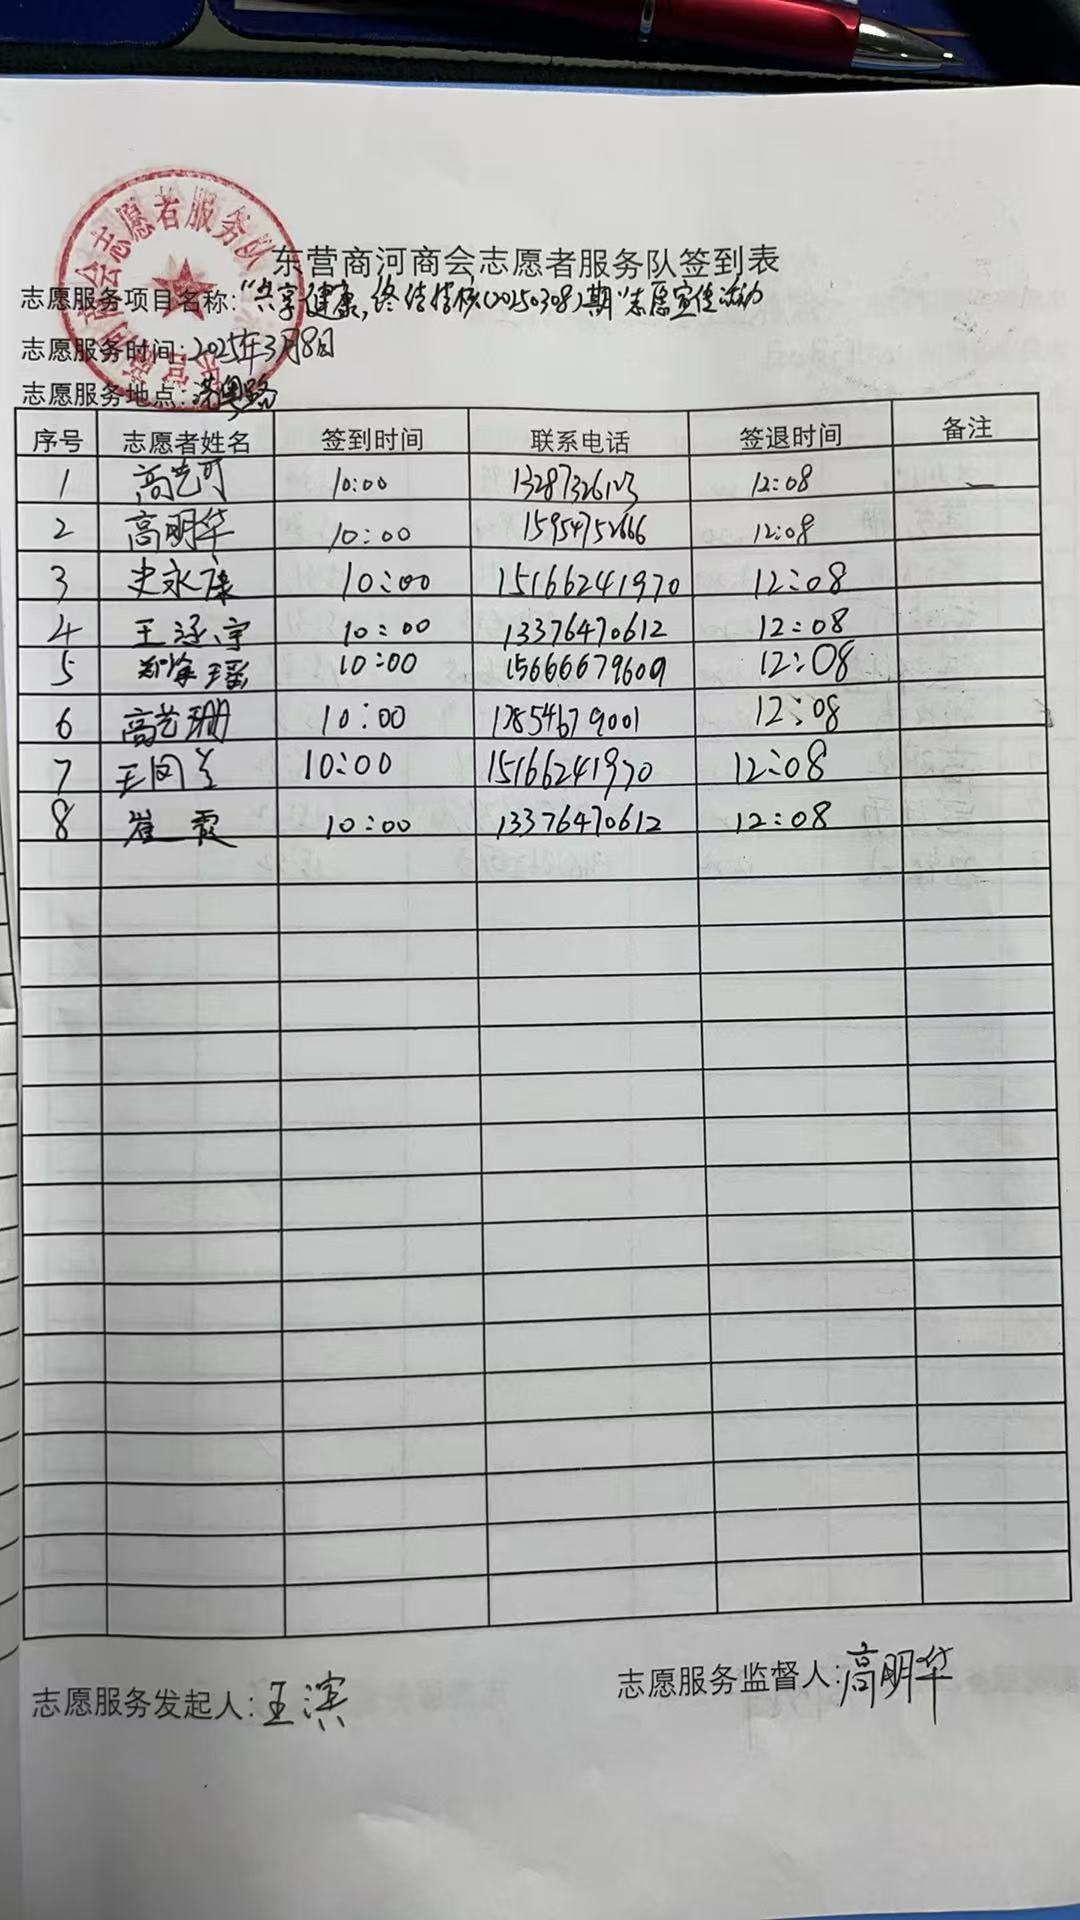 东营商河商会志愿者服务队签到表
志愿服务项目名称:"共享健康,终结结核(20250308)期"志愿宣传活动
志愿服务时间:2025年3月8日
志愿服务地点:
序号 志愿者姓名 签到时间 联系电话 签退时间 备注
1 高艺可 10:00 12:08
2 高明华 10:00 15954752666 12:08
3 史永康 10:00 15166241970 12:08
4 王涵宇 10:00 13376470612 12:08
5 10:00 15666679609 12:08
6 高艺珊 10:00 12:08
7 10:00 15166241970 12:08
8 崔霞 10:00 13376470612 12:08
志愿服务发起人:王滨
志愿服务监督人:高明华